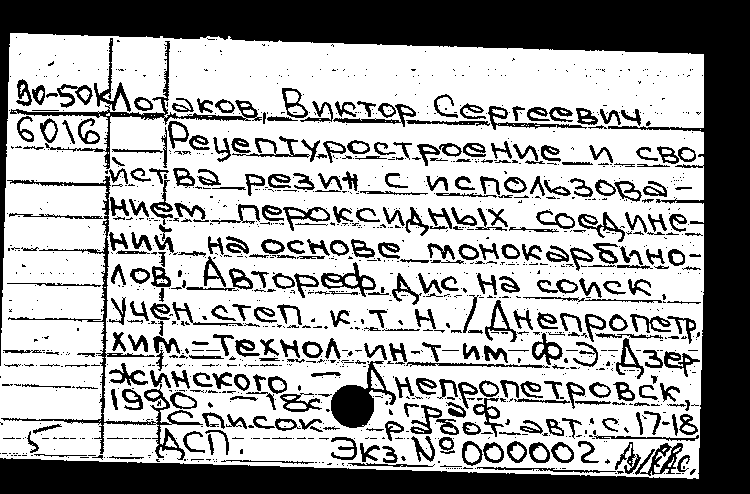 90-50к Лотаков, Виктор Сергеевич.
6016 Рецептуростроение и сво-
йства резин с использова-
нием пероксидных соедине-
ний на основе монокарбино-
лов: Автореф. дис. на соиск.
учен. степ. к. т. н. / Днепропетр.
хим.-технол. ин-т им. Ф.Э. Дзер
жинского. - Днепропетровск,
1990. - 18с. : граф.
Список работ авт.: с. 17-18
5 ДСП. Экз. № 000002.